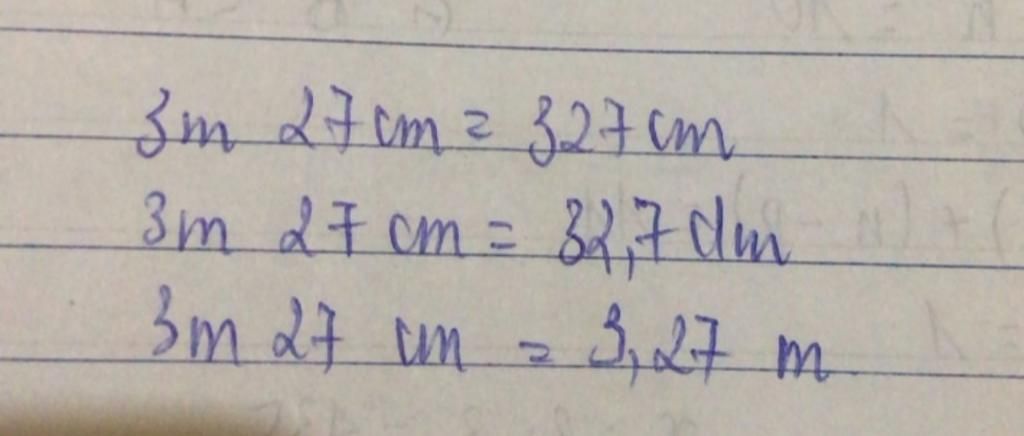 3m 27cm = 327cm
3m 27 cm = 32,7 dm
3m 27 cm = 3,27 m